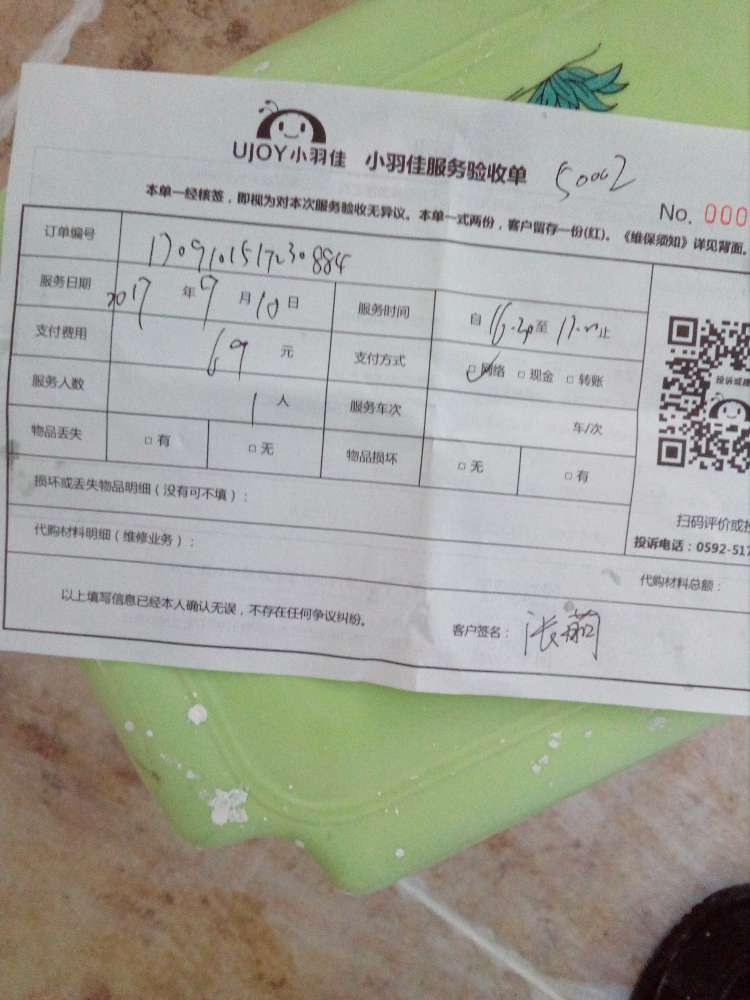 UJOY小羽佳 小羽佳服务验收单 50002
No. 000
本单一经核签，即视为对本次服务验收无异议。本单一式两份，客户留存一份(红)。《维保须知》详见背面。
订单编号 170910151730884
服务日期 2017 年 9 月 10 日 服务时间 自 至 止
支付费用 69 元 支付方式 □网络 □现金 □转账
服务人数 1 人 服务车次 车/次
物品丢失 □有 □无 物品损坏 □无 □有
损坏或丢失物品明细（没有可不填）：
扫码评价或投
代购材料明细（维修业务）：
投诉电话：0592-517
代购材料总额：
以上填写信息已经本人确认无误，不存在任何争议纠纷。
客户签名：